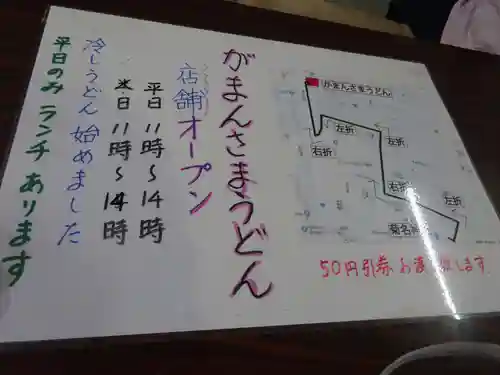 がまんさまうどん
店舗オープン
平日 11時～14時
日 11時～14時
冷しうどん始めました
平日のみ ランチ あります
がまんさまうどん
左折
右折
左折
右折
左折
菊名
50円引券お渡しします